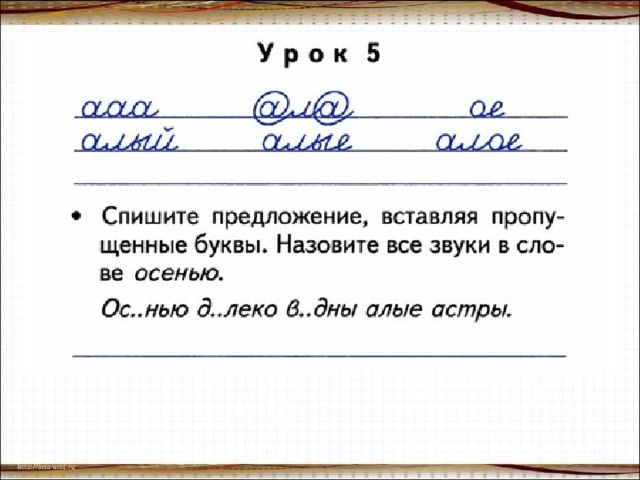 Урок 5
ааа ала ое
алый алые алое
• Спишите предложение, вставляя пропу-
щенные буквы. Назовите все звуки в сло-
ве осенью.
Ос..нью д..леко в..дны алые астры.